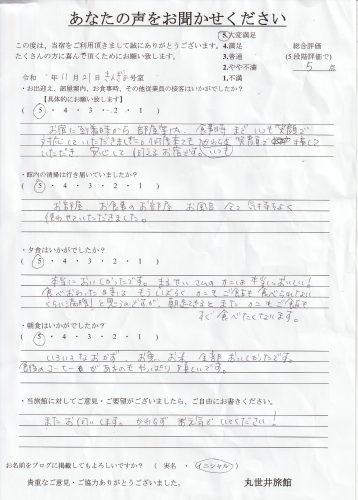 あなたの声をお聞かせください
この度は、当宿をご利用頂きまして誠にありがとうございます。
たくさんの方に喜んで頂くためにお願い致します。
5.大変満足
4.満足
3.普通
2.やや不満
1.不満
総合評価
(5段階評価で)
5 点
令和 年11月21日 号室
・お出迎え、部屋案内、お食事時、その他従業員の接客はいかがでしたか?
(5・4・3・2・1)
【具体的にお願い致します】
お宿に到着時から 部屋案内、食事時 までいつも笑顔で
対応していただきました。何度来ても かわらぬ 笑顔で 接して
いただき、安心して 伺えるお宿です。
・館内の清掃は行き届いていましたか?
(5・4・3・2・1)
お部屋、お食事のお部屋 お風呂 全て 気持ちよく
使わせていただきました。
・夕食はいかがでしたか?
(5・4・3・2・1)
本当においしかったです。まるせいさんの カニは 本当においしい!
食べおわった時は もういいぐらい カニもご飯も 食べられない
ぐらい満腹!と思うのですが、朝起きると また カニもご飯も
すぐ食べたくなります。
・朝食はいかがでしたか?
(5・4・3・2・1)
いろいろなおかず お魚 お米 全部 おいしかったです。
食後のコーヒーがあるのも やっぱり うれしいです。
・当旅館に対してご意見・ご要望がございましたら、ご自由にお書きください。
またお伺いします。かわらず お元気でいてください!
お名前をブログに掲載してもよろしいですか? (実名・イニシャル)
貴重なご意見・ご協力ありがとうございました。
丸世井旅館